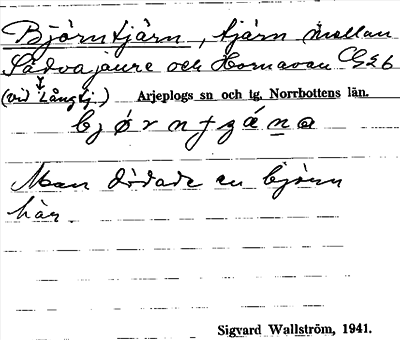 Björntjärn, tjärn mellan
Sädvajaure och Hornavan G26
(vid Långtj.) Arjeplogs sn och tg, Norrbottens län.
Man dödade en björn
här.
Sigvard Wallström, 1941.